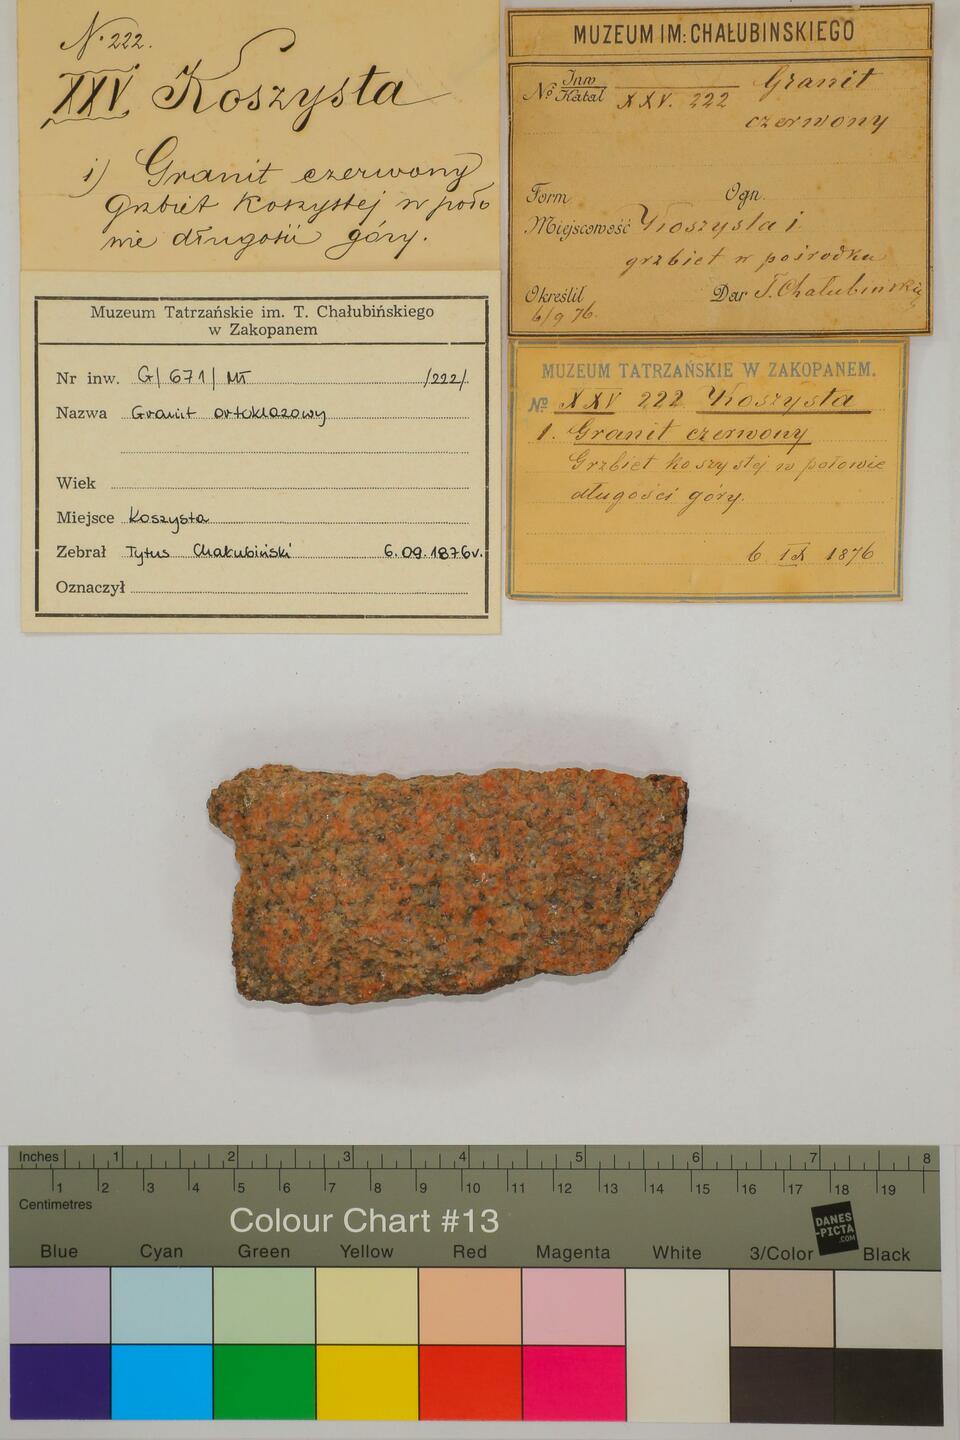 N. 222.
XXV Koszysta
i) Granit czerwony
Grzbiet Koszystej w poło
wie długości góry.
MUZEUM IM: CHAŁUBINSKIEGO
No Inw Katal XXV. 222 Granit
czerwony
Form. Ogn.
Miejscowość Koszysta i.
grzbiet w pośrodku
Określił Dar T. Chałubiński
6/9 76.
Muzeum Tatrzańskie im. T. Chałubińskiego
w Zakopanem
Nr inw. G/671/MT /222/
Nazwa Granit ortoklazowy
Wiek
Miejsce Koszysta
Zebrał Tytus Chałubiński 6.09.1876r.
Oznaczył
MUZEUM TATRZAŃSKIE W ZAKOPANEM.
No XXV 222 Koszysta
1. Granit czerwony
Grzbiet Koszystej w połowie
długości góry.
6 IX 1876
Inches 1 2 3 4 5 6 7 8
1 2 3 4 5 6 7 8 9 10 11 12 13 14 15 16 17 18 19
Centimetres
Colour Chart #13
DANES
-PICTA
.COM
Blue Cyan Green Yellow Red Magenta White 3/Color Black